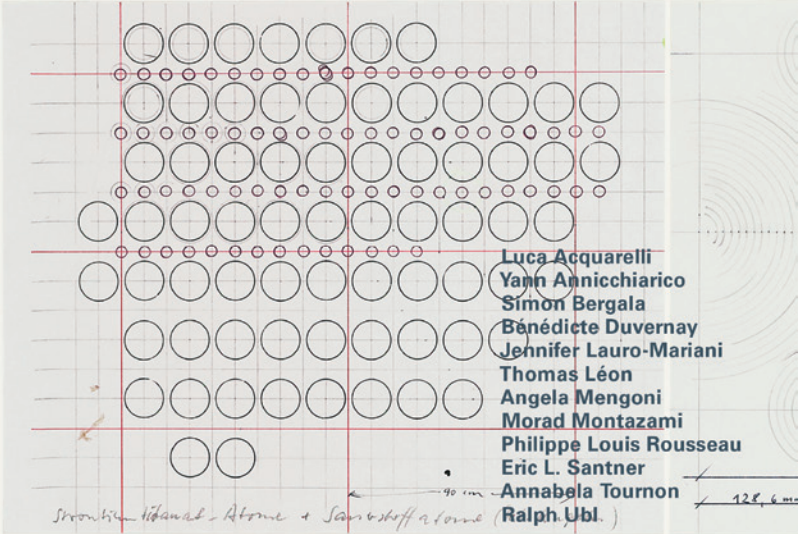 Luca Acquarelli
Yann Annicchiarico
Simon Bergala
Bénédicte Duvernay
Jennifer Lauro-Mariani
Thomas Léon
Angela Mengoni
Morad Montazami
Philippe Louis Rousseau
Eric L. Santner
90 cm
Annabela Tournon
128,6 mm
Strontium titanat - Atome + Sauerstoffatome (
Ralph Ubl